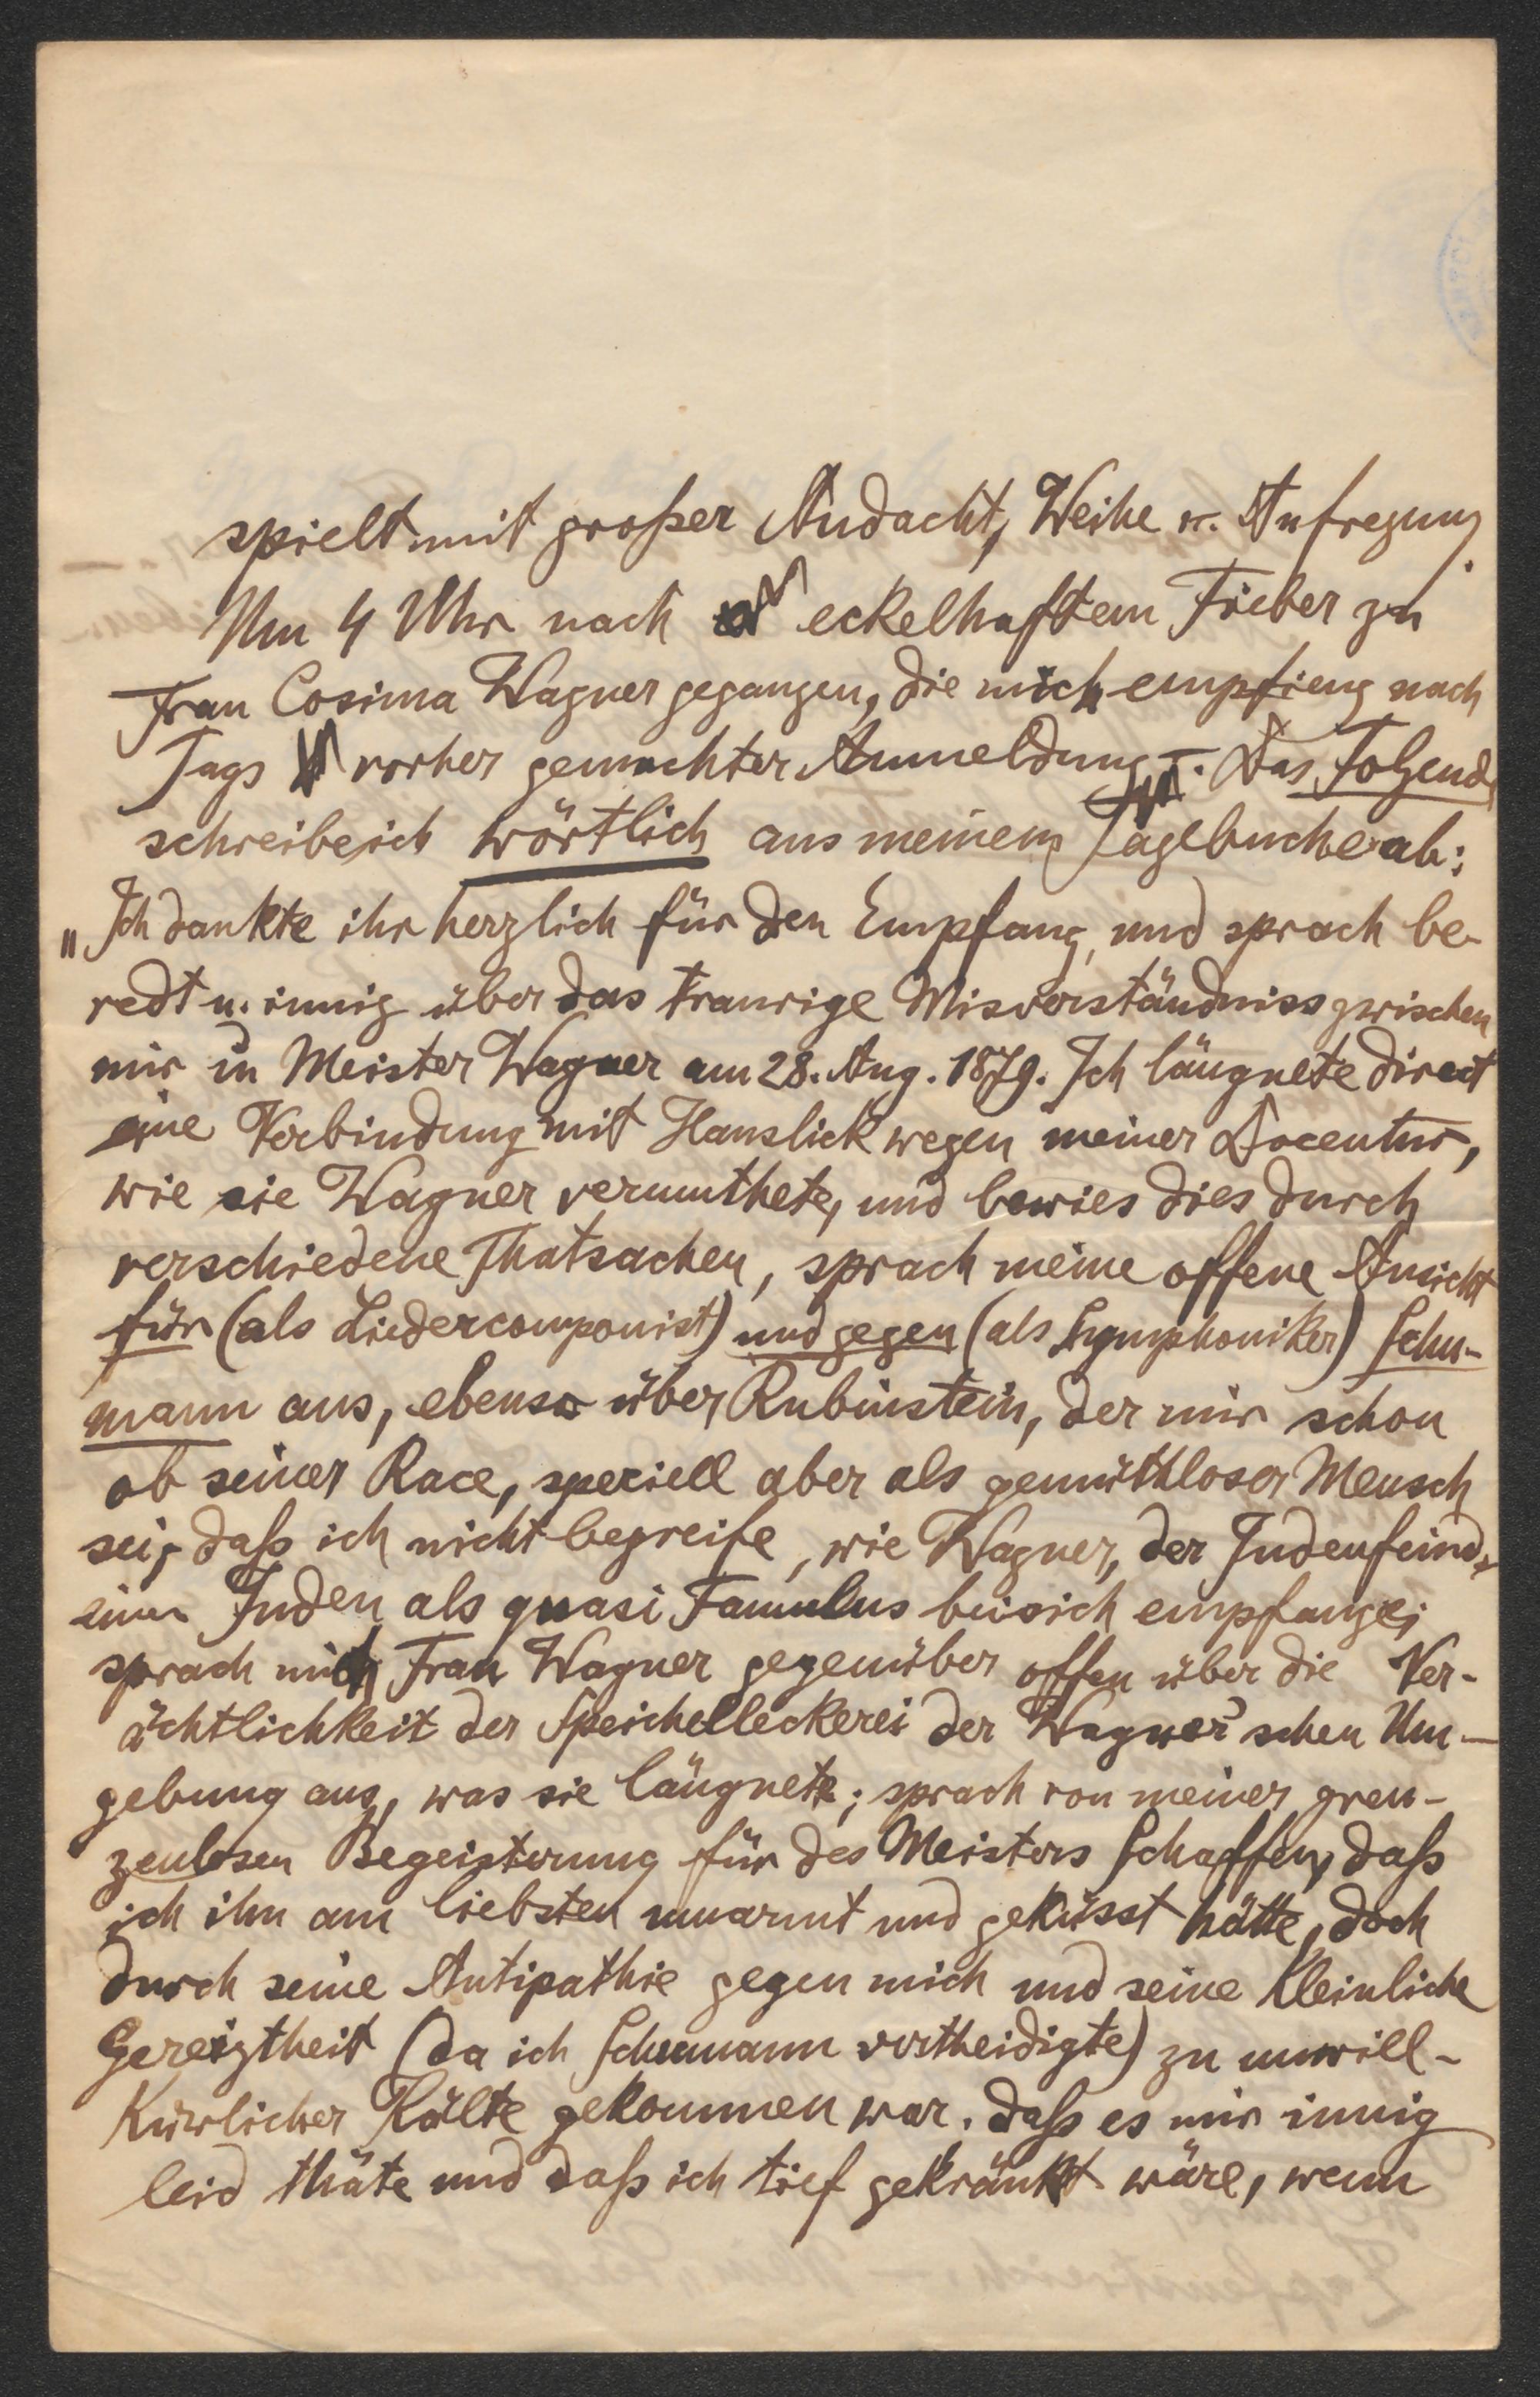 spielt mit großer Andacht, Weihe u. Aufregung.
Um 4 Uhr nach eckelhaftem Fieber zu
Frau Cosima Wagner gegangen, die mich empfieng nach
Tags vorher gemachter Anmeldung. Das Folgende
schreibe ich wörtlich aus meinem Tagebuche ab:
„Ich dankte ihr herzlich für den Empfang, und sprach be-
redt u. innig über das traurige Misverständniss zwischen
mir u Meister Wagner am 28. Aug. 1879. Ich läugnete direct
eine Verbindung mit Hanslick wegen meiner Docentur,
wie sie Wagner vermuthete, und bewies dies durch
verschiedene Thatsachen, sprach meine offene Ansicht
für (als Liedercomponist) und gegen (als Symphoniker) Schu-
mann aus, ebenso über Rubinstein, der mir schon
ob seiner Race, speciell aber als gemüthloser Mensch
sei, daß ich nicht begreife, wie Wagner, der Judenfeind,
einen Juden als quasi Famulus bei sich empfange;
sprach mich Frau Wagner gegenüber offen über die Ver-
ächtlichkeit der Speichelleckerei der Wagner'schen Um-
gebung aus, was sie läugnete; sprach von meiner gren-
zenlosen Begeisterung für des Meisters Schaffen, daß
ich ihn am liebsten umarmt und geküsst hätte, doch
durch seine Antipathie gegen mich und seine kleinliche
Gereiztheit (da ich Schumann vertheidigte) zu unwill-
kürlicher Kälte gekommen war. daß es mir innig
leid thäte und daß ich tief gekränkt wäre, wenn